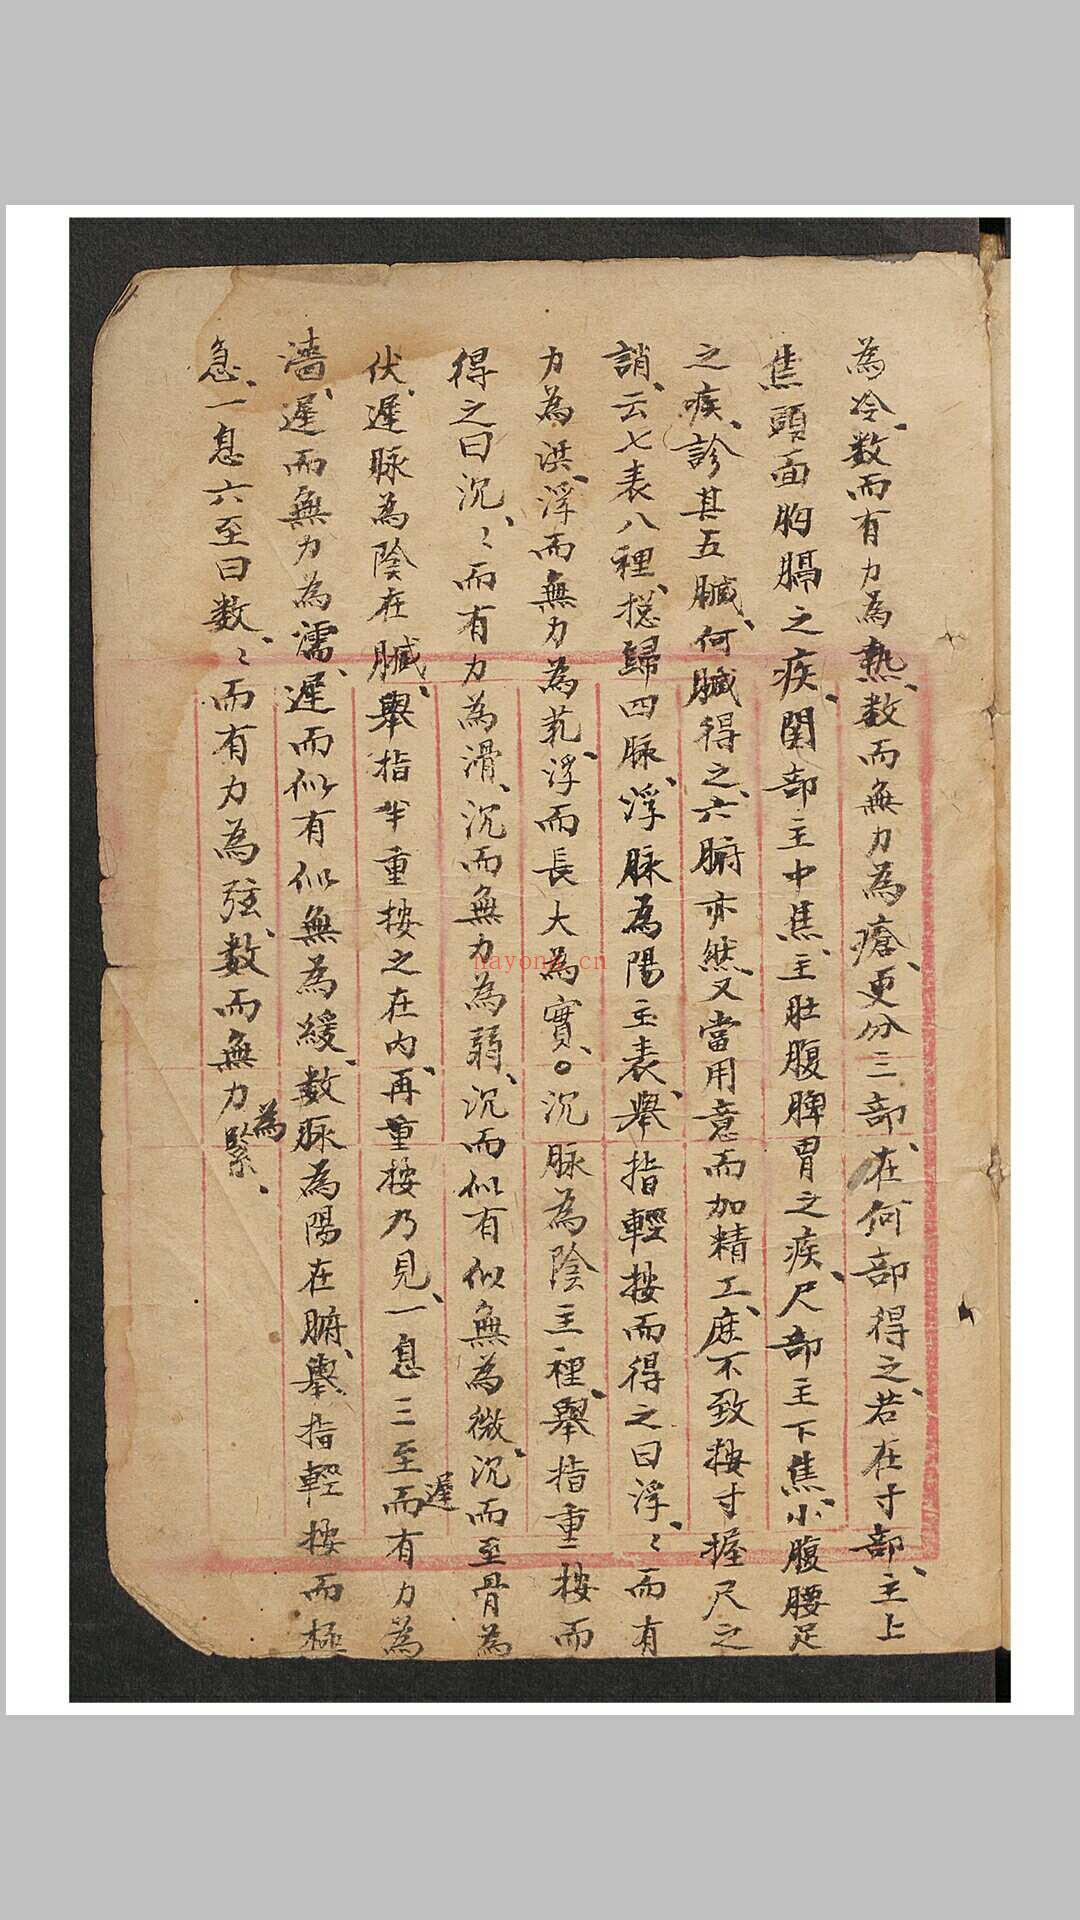 為冷、数而有力為熱、数而無力為瘡、更分三部、在何部得之、若在寸部、主上
焦頭面胸膈之疾、関部主中焦、主肚腹脾胃之疾、尺部主下焦、小腹腰足
之疾、診其五臓、何臓得之、六腑亦然、又當用意而加精工、庶不致按寸握尺之
誚、云七表八裡、捴歸四脉、浮脉為陽主表、舉指輕按而得之曰浮、〻而有
力為洪、浮而無力為芤、浮而長大為實、○沉脉為陰主裡、舉指重按而
得之曰沉、〻而有力為滑、沉而無力為弱、沉而似有似無為微、沉而至骨為
伏、遲脉為陰在臓、舉指半重按之在内、再重按乃見、一息三至遲而有力為
濇、遲而無力為濡、遲而似有似無為緩、数脉為陽在腑、舉指輕按而極
急、一息六至曰数、〻而有力為弦、数而無力為緊、
nayona.cn